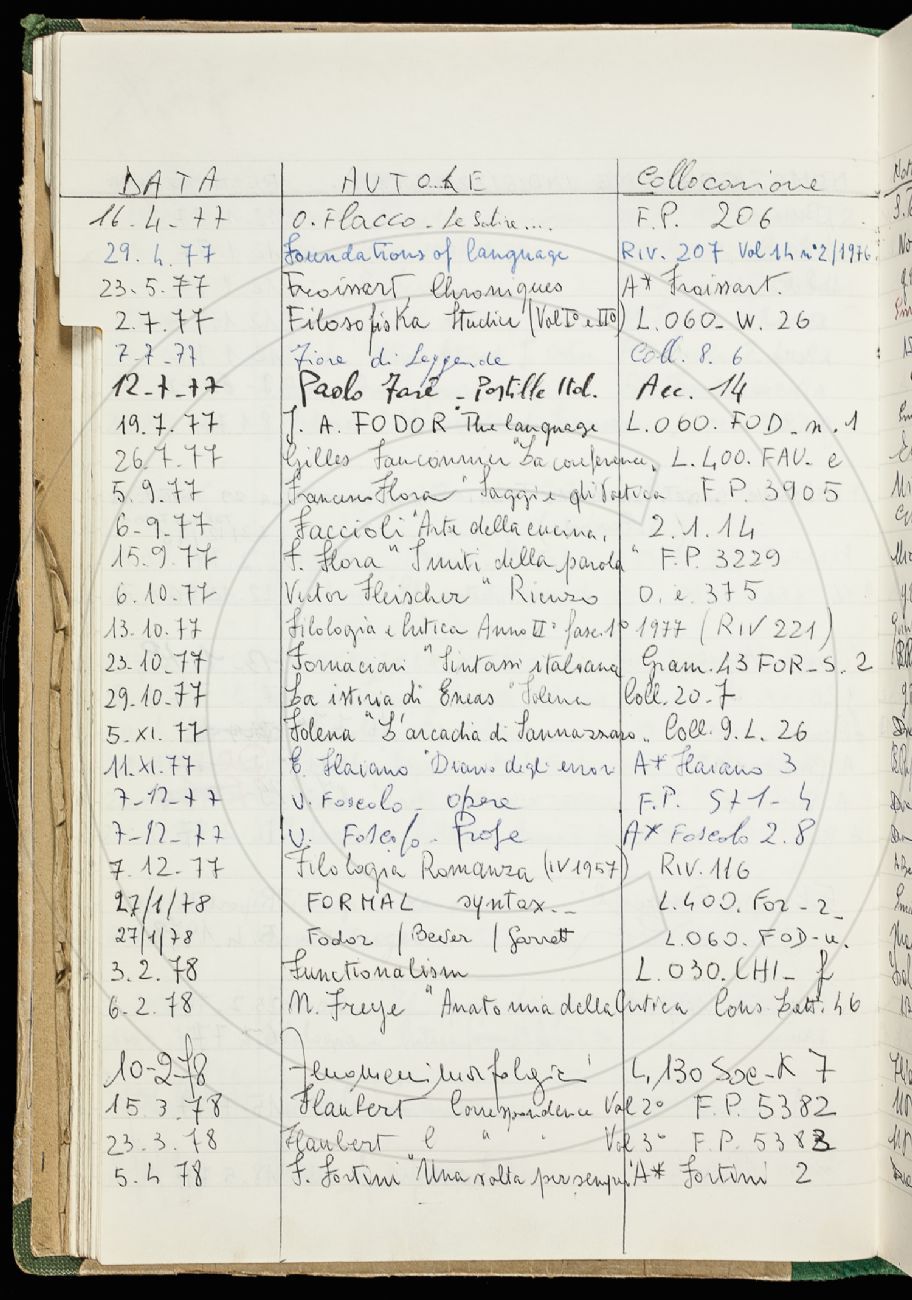 DATA AUTORE Collocazione
16.4.77 O. Flacco. Le Satire.... F.P. 206
29.4.77 Foundations of language Riv. 207 Vol 14 n°2/1976
23.5.77 Froissart, Chroniques A* Froissart.
2.7.77 Filosofiska Studier (Vol I° e II°) L.060-W. 26
7-7-77 Fiore di Leggende Coll. 8. 6
12-7-77 Paolo Farè - Postille Ital. Acc. 14
19.7.77 J. A. FODOR "The language L.060. FOD-n. 1
26.7.77 Gilles Fauconnier "La L.400. FAU. e
5.9.77 Francesco Flora "Saggi F.P. 3905
6-9.77 Faccioli "Arte della cucina, 2.1.14
15.9.77 F. Flora "I miti della parola" F.P. 3229
6.10.77 Victor Fleischer "Rienzo O. e. 375
13.10.77 Filologia e Critica Anno II° fasc. 1° 1977 (RIV 221)
23.10.77 Fornaciari "Sintassi italiana Gram. 43 FOR-S. 2
29.10.77 La istoria di Eneas "Folena Coll. 20-7
5.XI.77 Folena "L'arcadia di Sannazzaro. Coll. 9. L. 26
11.XI.77 E. Flaiano "Diario degli errori A* Flaiano 3
7-12-77 U. Foscolo - opere F.P. 571-4
7-12-77 U. Foscolo - Prose A* Foscolo 2.8
7.12.77 Filologia Romanza (IV 1957) RIV. 116
27/1/78 FORMAL syntax.-- L.400. FOR-2-
27/1/78 Fodor / Bever / Garrett L.060. FOD-u.
3.2.78 Functionalism L.030. CHI- f
6.2.78 N. Freye "Anatomia della Critica Cons Lett. 46
10-2-78 Fenomeni morfologici L,130 Soe-K 7
15.3.78 Flaubert Correspondence Vol 2° F.P. 5382
23.3.78 Flaubert C " " Vol 3° F.P. 5382
5.4 78 F. Fortini "Una volta per sempre" A* Fortini 2